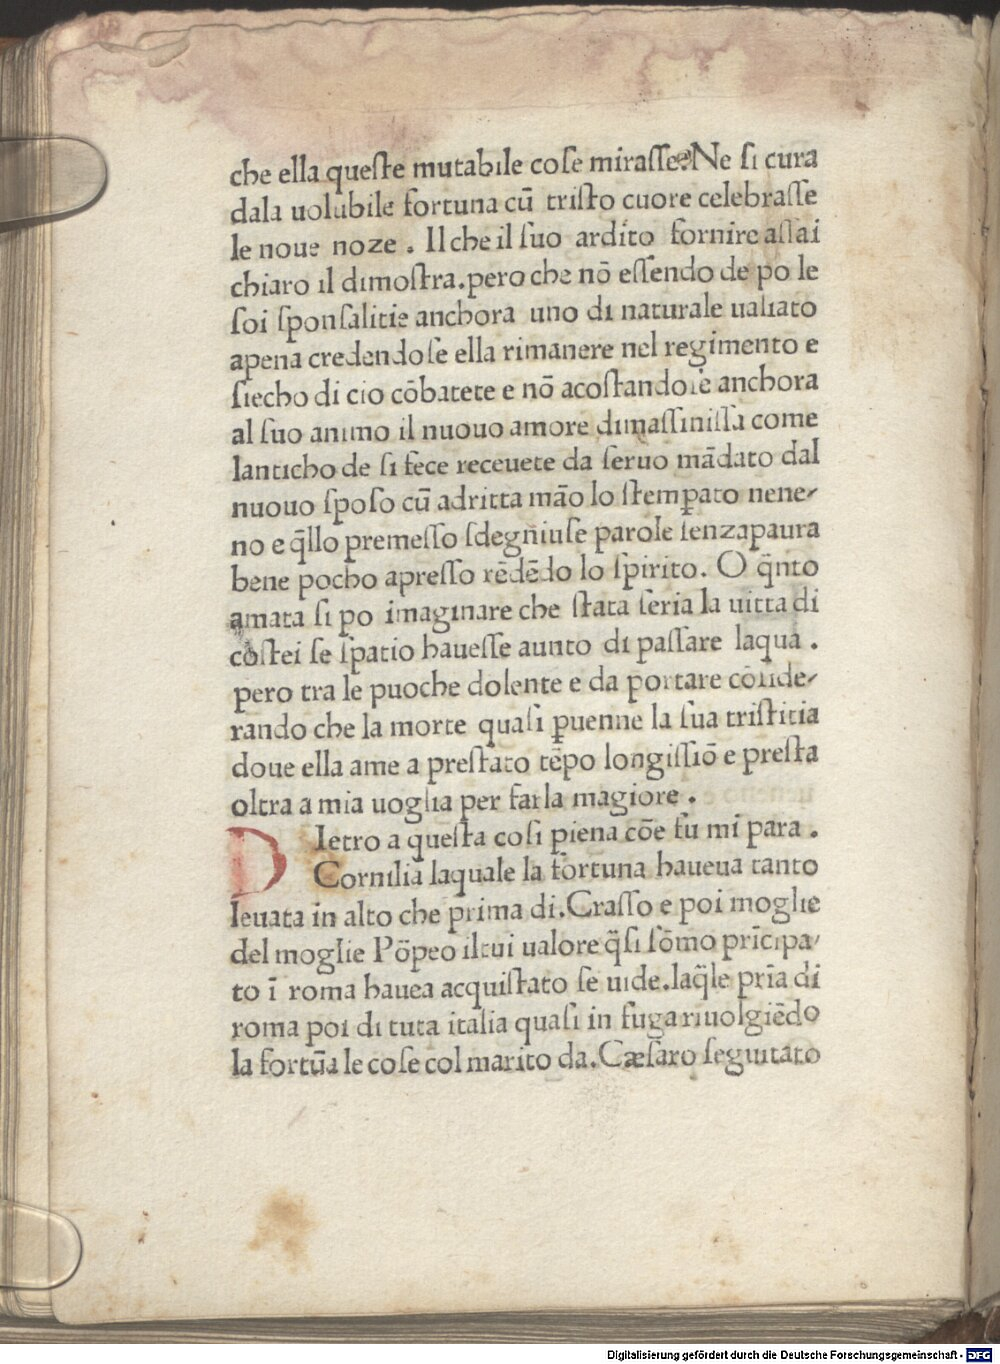 che ella queſte mutabile coſe miraſſe? Ne ſi cura
dala uolubile fortuna cū triſto cuore celebraſſe
le noue noze . Il che il ſuo ardito fornire aſſai
chiaro il dimoſtra. pero che nō eſſendo de po le
ſoi ſponſalitie anchora uno di naturale ualiato
apena credendoſe ella rimanere nel regimento e
ſiecho di cio cōbatete e nō acoſtandoſe anchora
al ſuo animo il nuouo amore dimaſſiniſſa come
lanticho de ſi fece receuete da ſeruo mādato dal
nuouo ſpoſo cū adritta māo lo ſtemꝑato nene-
no e q̄llo premeſſo ſdegniuſe parole ſenzapaura
bene pocho apreſſo rēdēdo lo ſpirito. O q̄nto
amata ſi po imaginare che ſtata ſeria la uitta di
coſtei ſe ſpatio haueſſe aunto di paſſare laqua .
pero tra le puoche dolente e da portare cōnde-
rando che la morte quaſi ꝑuenne la ſua triſticia
doue ella ame a preſtato tēpo longiſſiō e preſta
oltra a mia uoglia per farla magiore .
DIetro a queſta coſi piena cōe fu mi para .
Cornilia laquale la fortuna haueua tanto
leuata in alto che prima di. Craſſo e poi moglie
del moglie Pōpeo ilcui ualore q̄ſi ſōmo prīcipa-
to ī roma hauea acquiſtato ſe uide. laq̄le prīa di
roma poi di tuta italia quaſi in fuga riuolgiēdo
la fortūa le coſe col marito da. Cæſaro ſeguitato
Digitalisierung gefördert durch die Deutsche Forschungsgemeinschaft - DFG